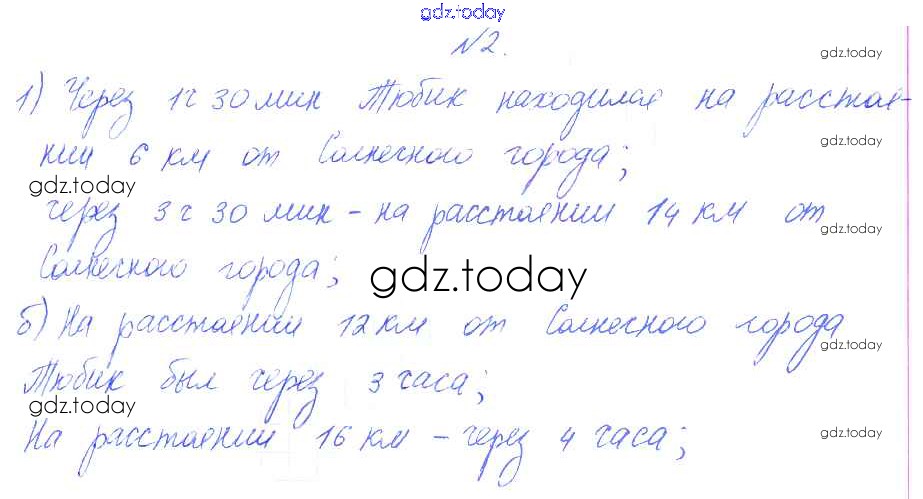 gdz.today
№2.
gdz.today
1) Через 1ч 30 мин Тюбик находился на расстоя-
gdz.today
нии 6 км от Солнечного города;
gdz.today
через 3 ч 30 мин - на расстоянии 14 км от
gdz.today
Солнечного города;
gdz.today
б) На расстоянии 12 км от Солнечного города
gdz.today
Тюбик был через 3 часа;
gdz.today
На расстоянии 16 км - через 4 часа;
gdz.today